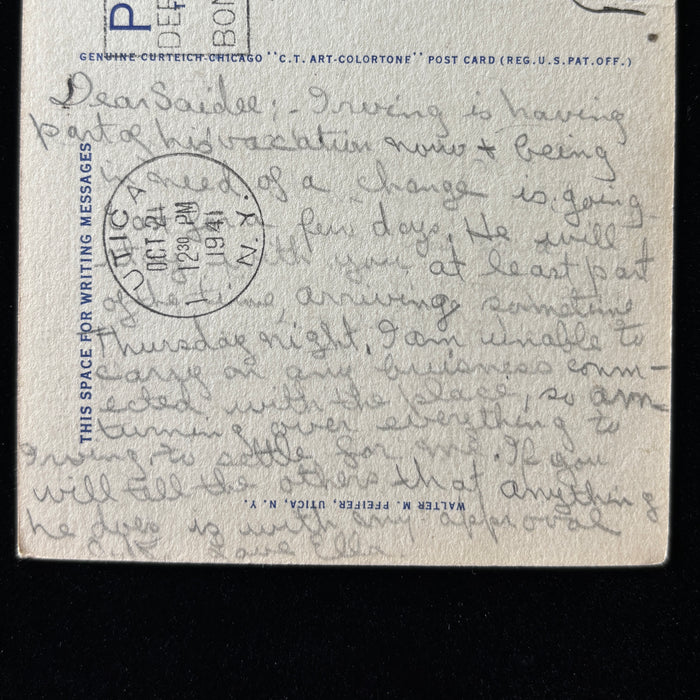 P
DEF
BON
GENUINE CURTEICH-CHICAGO "C.T. ART-COLORTONE" POST CARD (REG.U.S.PAT.OFF.)
THIS SPACE FOR WRITING MESSAGES
Dear Saidee; - Irving is having
part of his vacation now + being
in need of a change is going
few days. He will
with you at least part
of the time, arriving sometime
Thursday night. I am unable to
carry on any business conn-
ected with the place, so am
turning over everything to
Irving to settle for me. If you
will tell the others that anything
he does is with my approval
Love Ella
UTICA
OCT 21
12 30 PM
1941
N.Y.
WALTER M. PFEIFER, UTICA, N. Y.